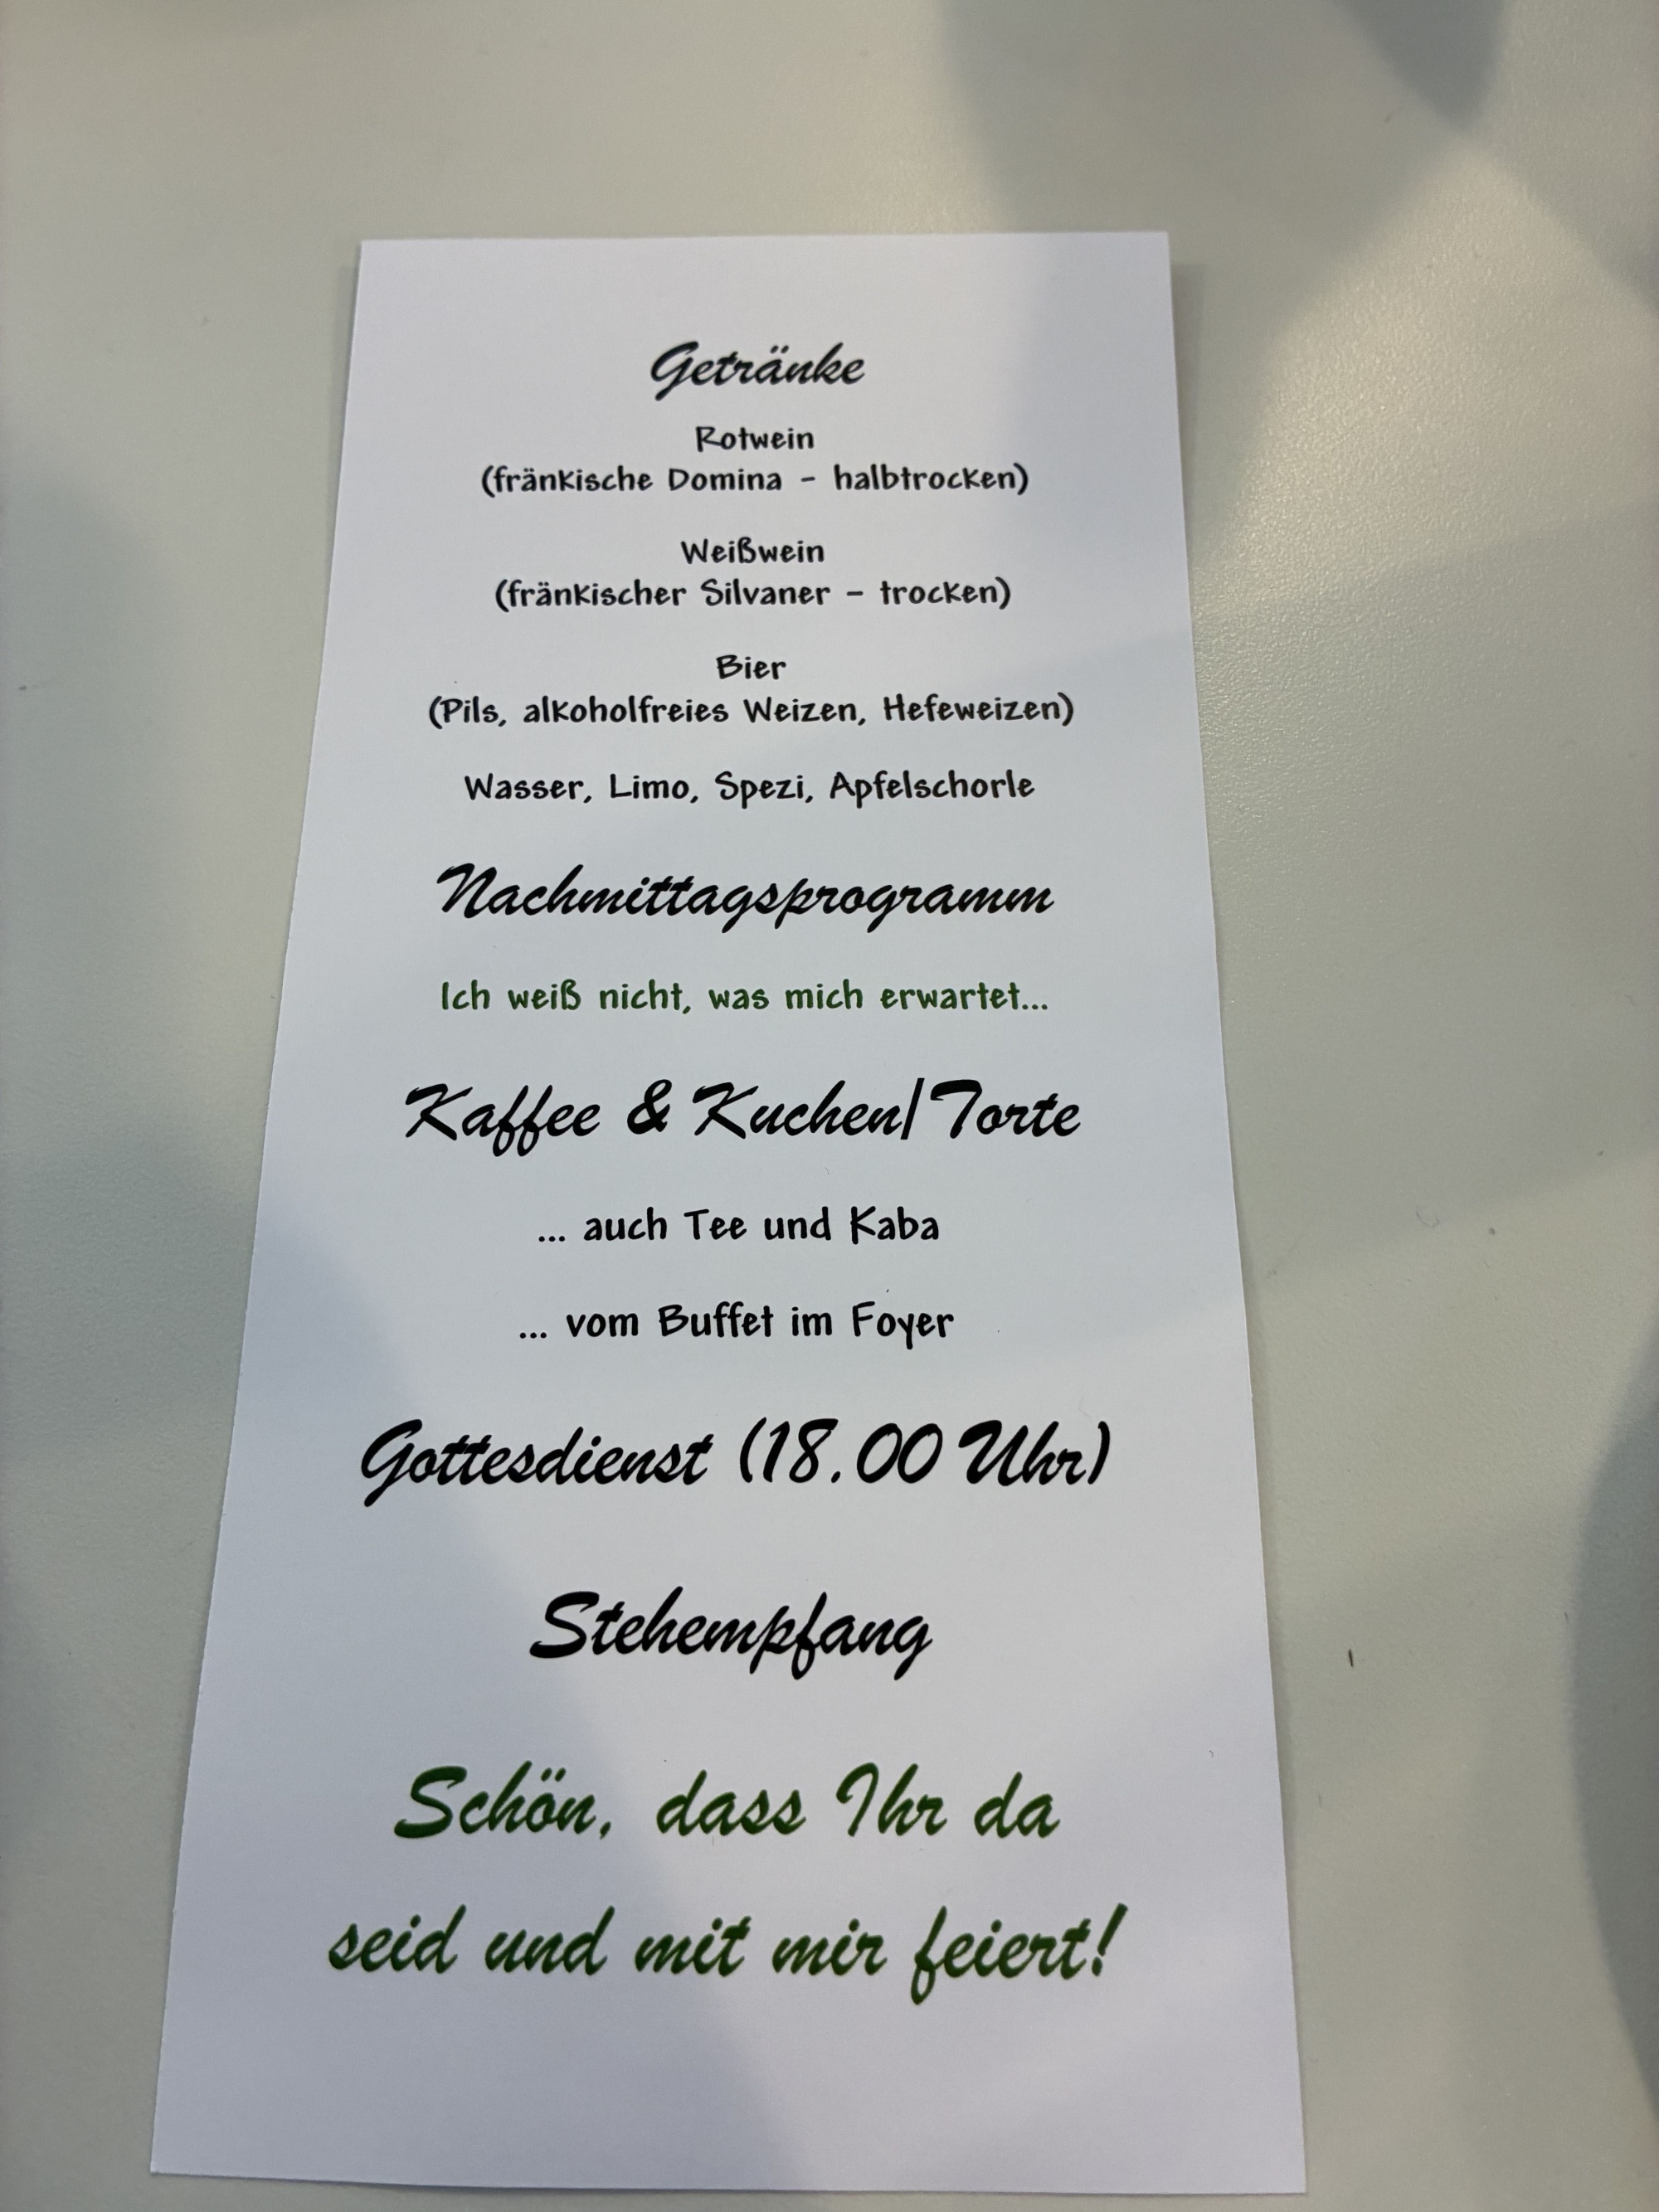 Getränke
Rotwein
(fränkische Domina - halbtrocken)
Weißwein
(fränkischer Silvaner - trocken)
Bier
(Pils, alkoholfreies Weizen, Hefeweizen)
Wasser, Limo, Spezi, Apfelschorle
Nachmittagsprogramm
Ich weiß nicht, was mich erwartet...
Kaffee & Kuchen/Torte
... auch Tee und Kaba
... vom Buffet im Foyer
Gottesdienst (18.00 Uhr)
Stehempfang
Schön, dass Ihr da
seid und mit mir feiert!